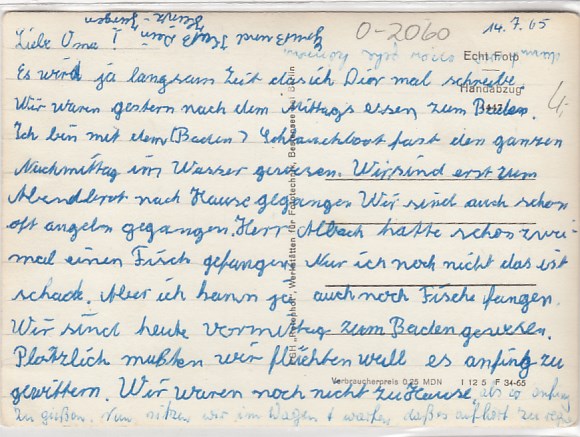 O-2060
14.7.65
Liebe Oma!
Echt Foto
Handabzug
Es wird ja langsam Zeit das ich Dior mal schreibe.
Wir waren gestern nach dem Mittags essen zum Baden.
Ich bin mit dem (Baden) Schlauchboot fast den ganzen
Nachmittag im Wasser gewesen. Wir sind erst zum
Abendbrot nach Hause gegangen Wir sind auch schon
oft angeln gegangen. Herr Albach hatte schon zwei-
mal einen Fisch gefangen Nur ich noch nicht das ist
schade. Aber ich kann ja auch noch Fische fangen.
Wir sind heute vormittag zum Baden gewesen.
Plötzlich mußten wir flüchten weil es anfing zu
gewittern. Wir waren noch nicht zu Hause als es anfing
zu gießen. Nun sitzen wir im Wagen + warten daß es aufhört zu
Verbraucherpreis 0,25 MDN I 12 5 F 34-65
Werkstätten für Fototechnik, Bestensee bei Berlin
Heinz-Jürgen